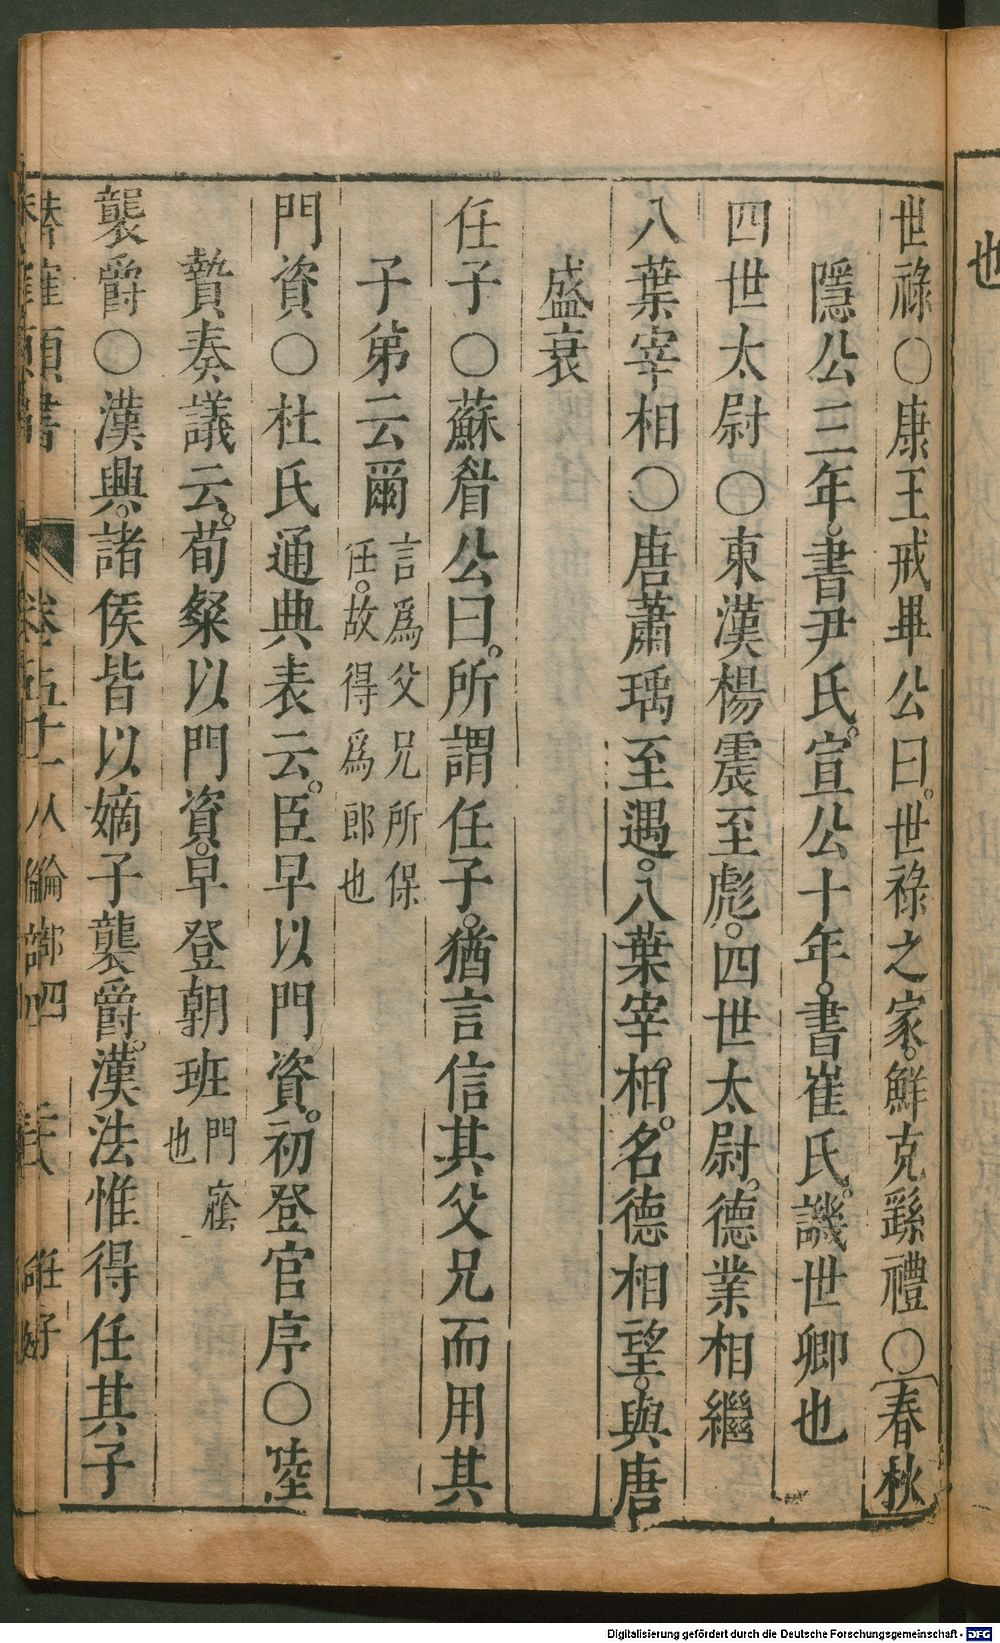 世祿○康王戒畢公曰。世祿之家。鮮克繇禮○〔春秋
隱公三年。書尹氏。宣公十年。書崔氏。譏世卿也
四世太尉○東漢楊震至彪。四世太尉。德業相繼
八葉宰相○唐蕭瑀至遘。八葉宰相。名德相望。與唐
盛衰
任子○蘇老公曰。所謂任子。猶言信其父兄而用其
子弟云爾言爲父兄所保
任。故得爲郎也
門資○杜氏通典表云。臣早以門資。初登官序○陸
贄奏議云。荀粲以門資。早登朝班門廕
也
襲爵○漢興。諸侯皆以嫡子襲爵。漢法惟得任其子
類書
卷五十一
人倫部四
任子
也
Digitalisierung gefördert durch die Deutsche Forschungsgemeinschaft - DFG